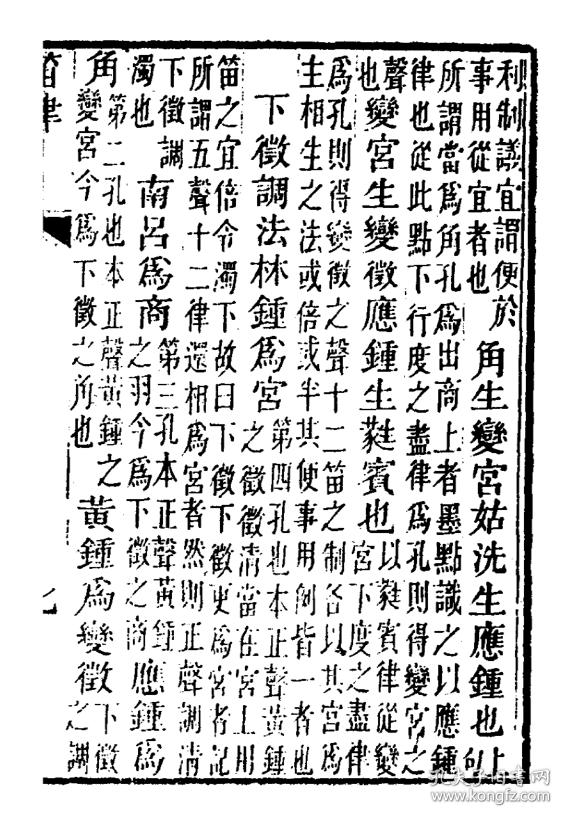 利制議宜謂便於事用從宜者也角生變宮姑洗生應鍾也上句
所謂當爲角孔爲出商上者墨點識之以應鍾律也從此點下行度之盡律爲孔則得變宮之
聲也變宮生變徵應鍾生蕤賓也以蕤賓律從變宮下度之盡律
爲孔則得變徵之聲十二笛之制各以其宮爲生相生之法或倍或半其便事用例皆一者也
下徵調法林鍾爲宮第四孔也本正聲黃鍾之徵徵清當在宮上用
笛之宜倍令濁下故曰下徵下徵更爲宮者記所謂五聲十二律還相爲宮者然則正聲調清
下徵調濁也南呂爲商第三孔本正聲黃鍾之羽今爲下徵之商應鍾爲
角第二孔也本正聲黃鍾之變宮今爲下徵之角也黃鍾爲變徵下徵之調
笛律
孔夫子旧书网
www.kongfz.com